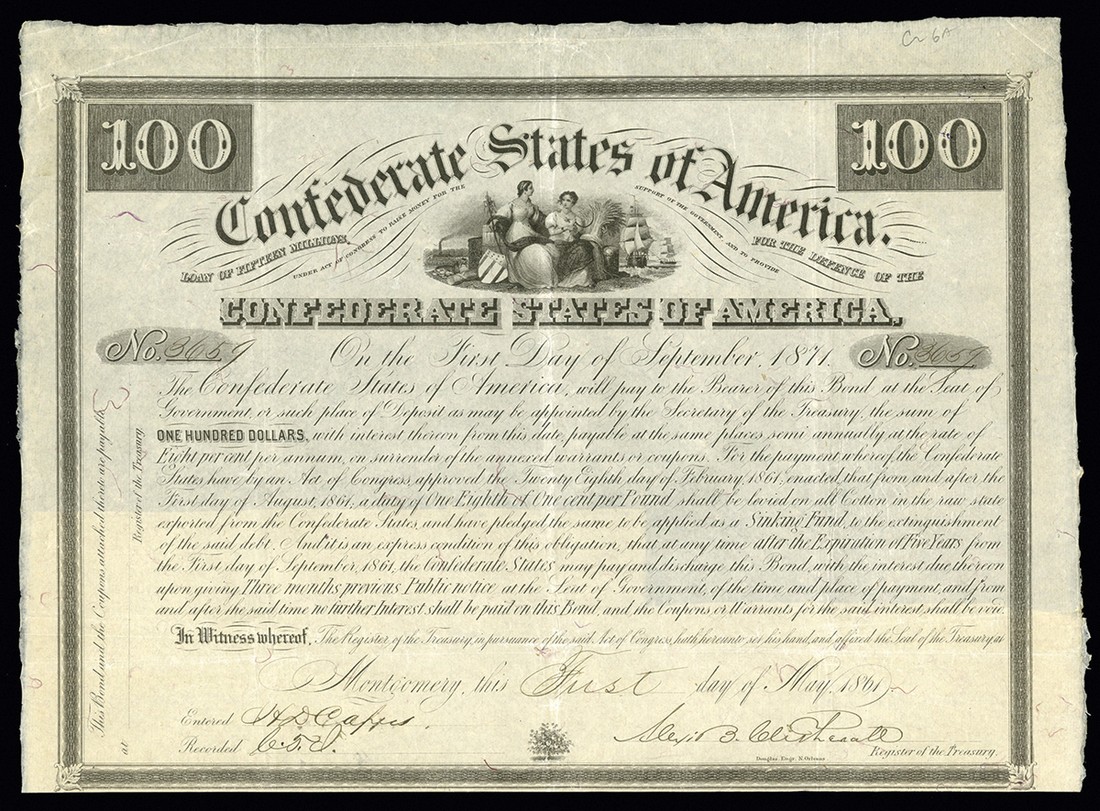 Cr 6A
100
100
Confederate States of America.
LOAN OF FIFTEEN MILLIONS,
UNDER ACT OF CONGRESS TO RAISE MONEY FOR THE
SUPPORT OF THE GOVERNMENT AND TO PROVIDE
FOR THE DEFENCE OF THE
CONFEDERATE STATES OF AMERICA,
No. 3659
No. 3659
On the First Day of September 1871.
The Confederate States of America, will pay to the Bearer of this Bond at the Seat of
Government, or such place of Deposit as may be appointed by the Secretary of the Treasury, the sum of
ONE HUNDRED DOLLARS, with interest thereon from this date, payable at the same places semi annually at the rate of
Eight per cent per annum, on surrender of the annexed warrants or coupons. For the payment whereof, the Confederate
States have by an Act of Congress, approved the Twenty Eighth day of February, 1861, enacted, that from and after the
First day of August, 1861, a duty of One Eighth of One cent per Pound shall be levied on all Cotton in the raw state
exported from the Confederate States, and have pledged the same to be applied as a Sinking Fund, to the extinguishment
of the said debt. And it is an express condition of this obligation, that at any time after the Expiration of Five Years from
the First day of September, 1861, the Confederate States may pay and discharge this Bond, with the interest due thereon
upon giving Three months previous Public notice at the Seat of Government, of the time and place of payment, and from
and after the said time no further Interest shall be paid on this Bond, and the Coupons or Warrants for the said interest shall be void.
In Witness whereof, The Register of the Treasury, in pursuance of the said Act of Congress, hath hereunto set his hand, and affixed the Seal of the Treasury, at
Montgomery, this First day of May, 1861
Entered
Recorded C.T.J.
Register of the Treasury.
Douglas Engr. N. Orleans
This Bond and the Coupons attached thereto are payable
at
Register of the Treasury.